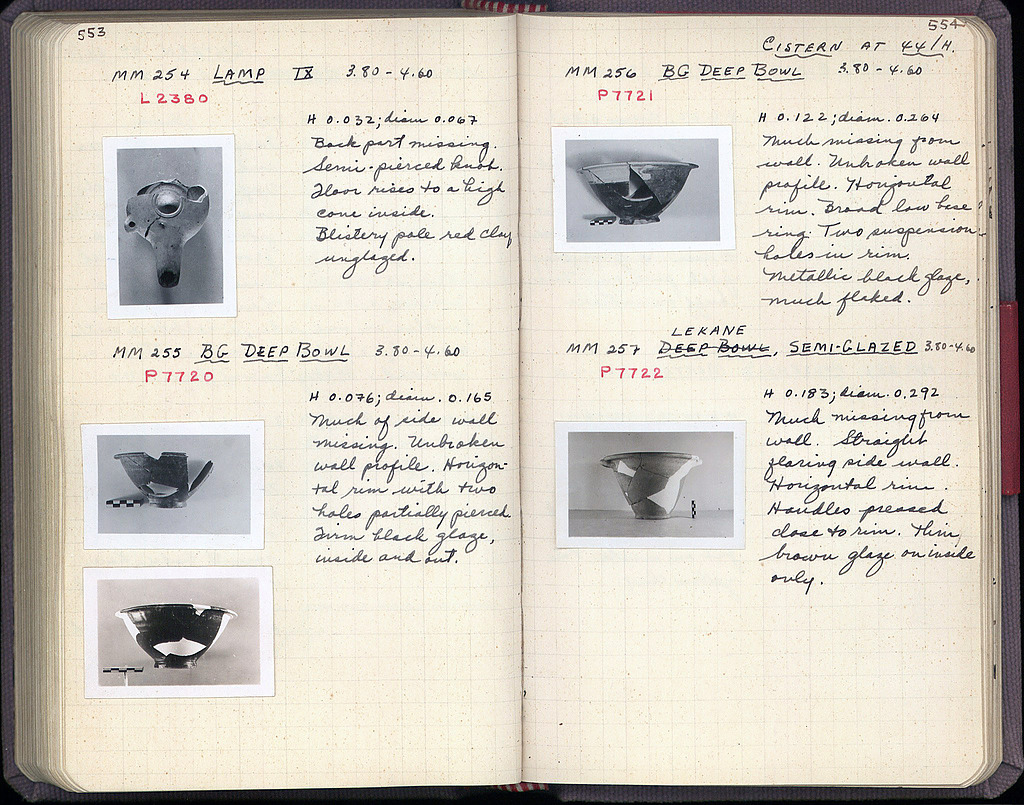 553
MM 254 LAMP IX 3.80 - 4.60
L 2380
H 0.032; diam 0.067
Back part missing.
Semi-pierced knob.
Floor rises to a high
cone inside.
Blistery pale red clay
unglazed.
MM 255 BG DEEP BOWL 3.80 - 4.60
P 7720
H 0.076; diam. 0.165
Much of side wall
missing. Unbroken
wall profile. Horizon-
tal rim with two
holes partially pierced.
Firm black glaze,
inside and out.
554
CISTERN AT 44/H.
MM 256 BG DEEP BOWL 3.80 - 4.60
P 7721
H 0.122; diam. 0.264
Much missing from
wall. Unbroken wall
profile. Horizontal
rim. Broad low base
ring. Two suspension
holes in rim.
Metallic black glaze,
much flaked.
LEKANE
MM 257 DEEP BOWL, SEMI-GLAZED 3.80-4.60
P 7722
H 0.183; diam. 0.292
Much missing from
wall. Straight
flaring side wall.
Horizontal rim.
Handles pressed
close to rim. Thin
brown glaze on inside
only.